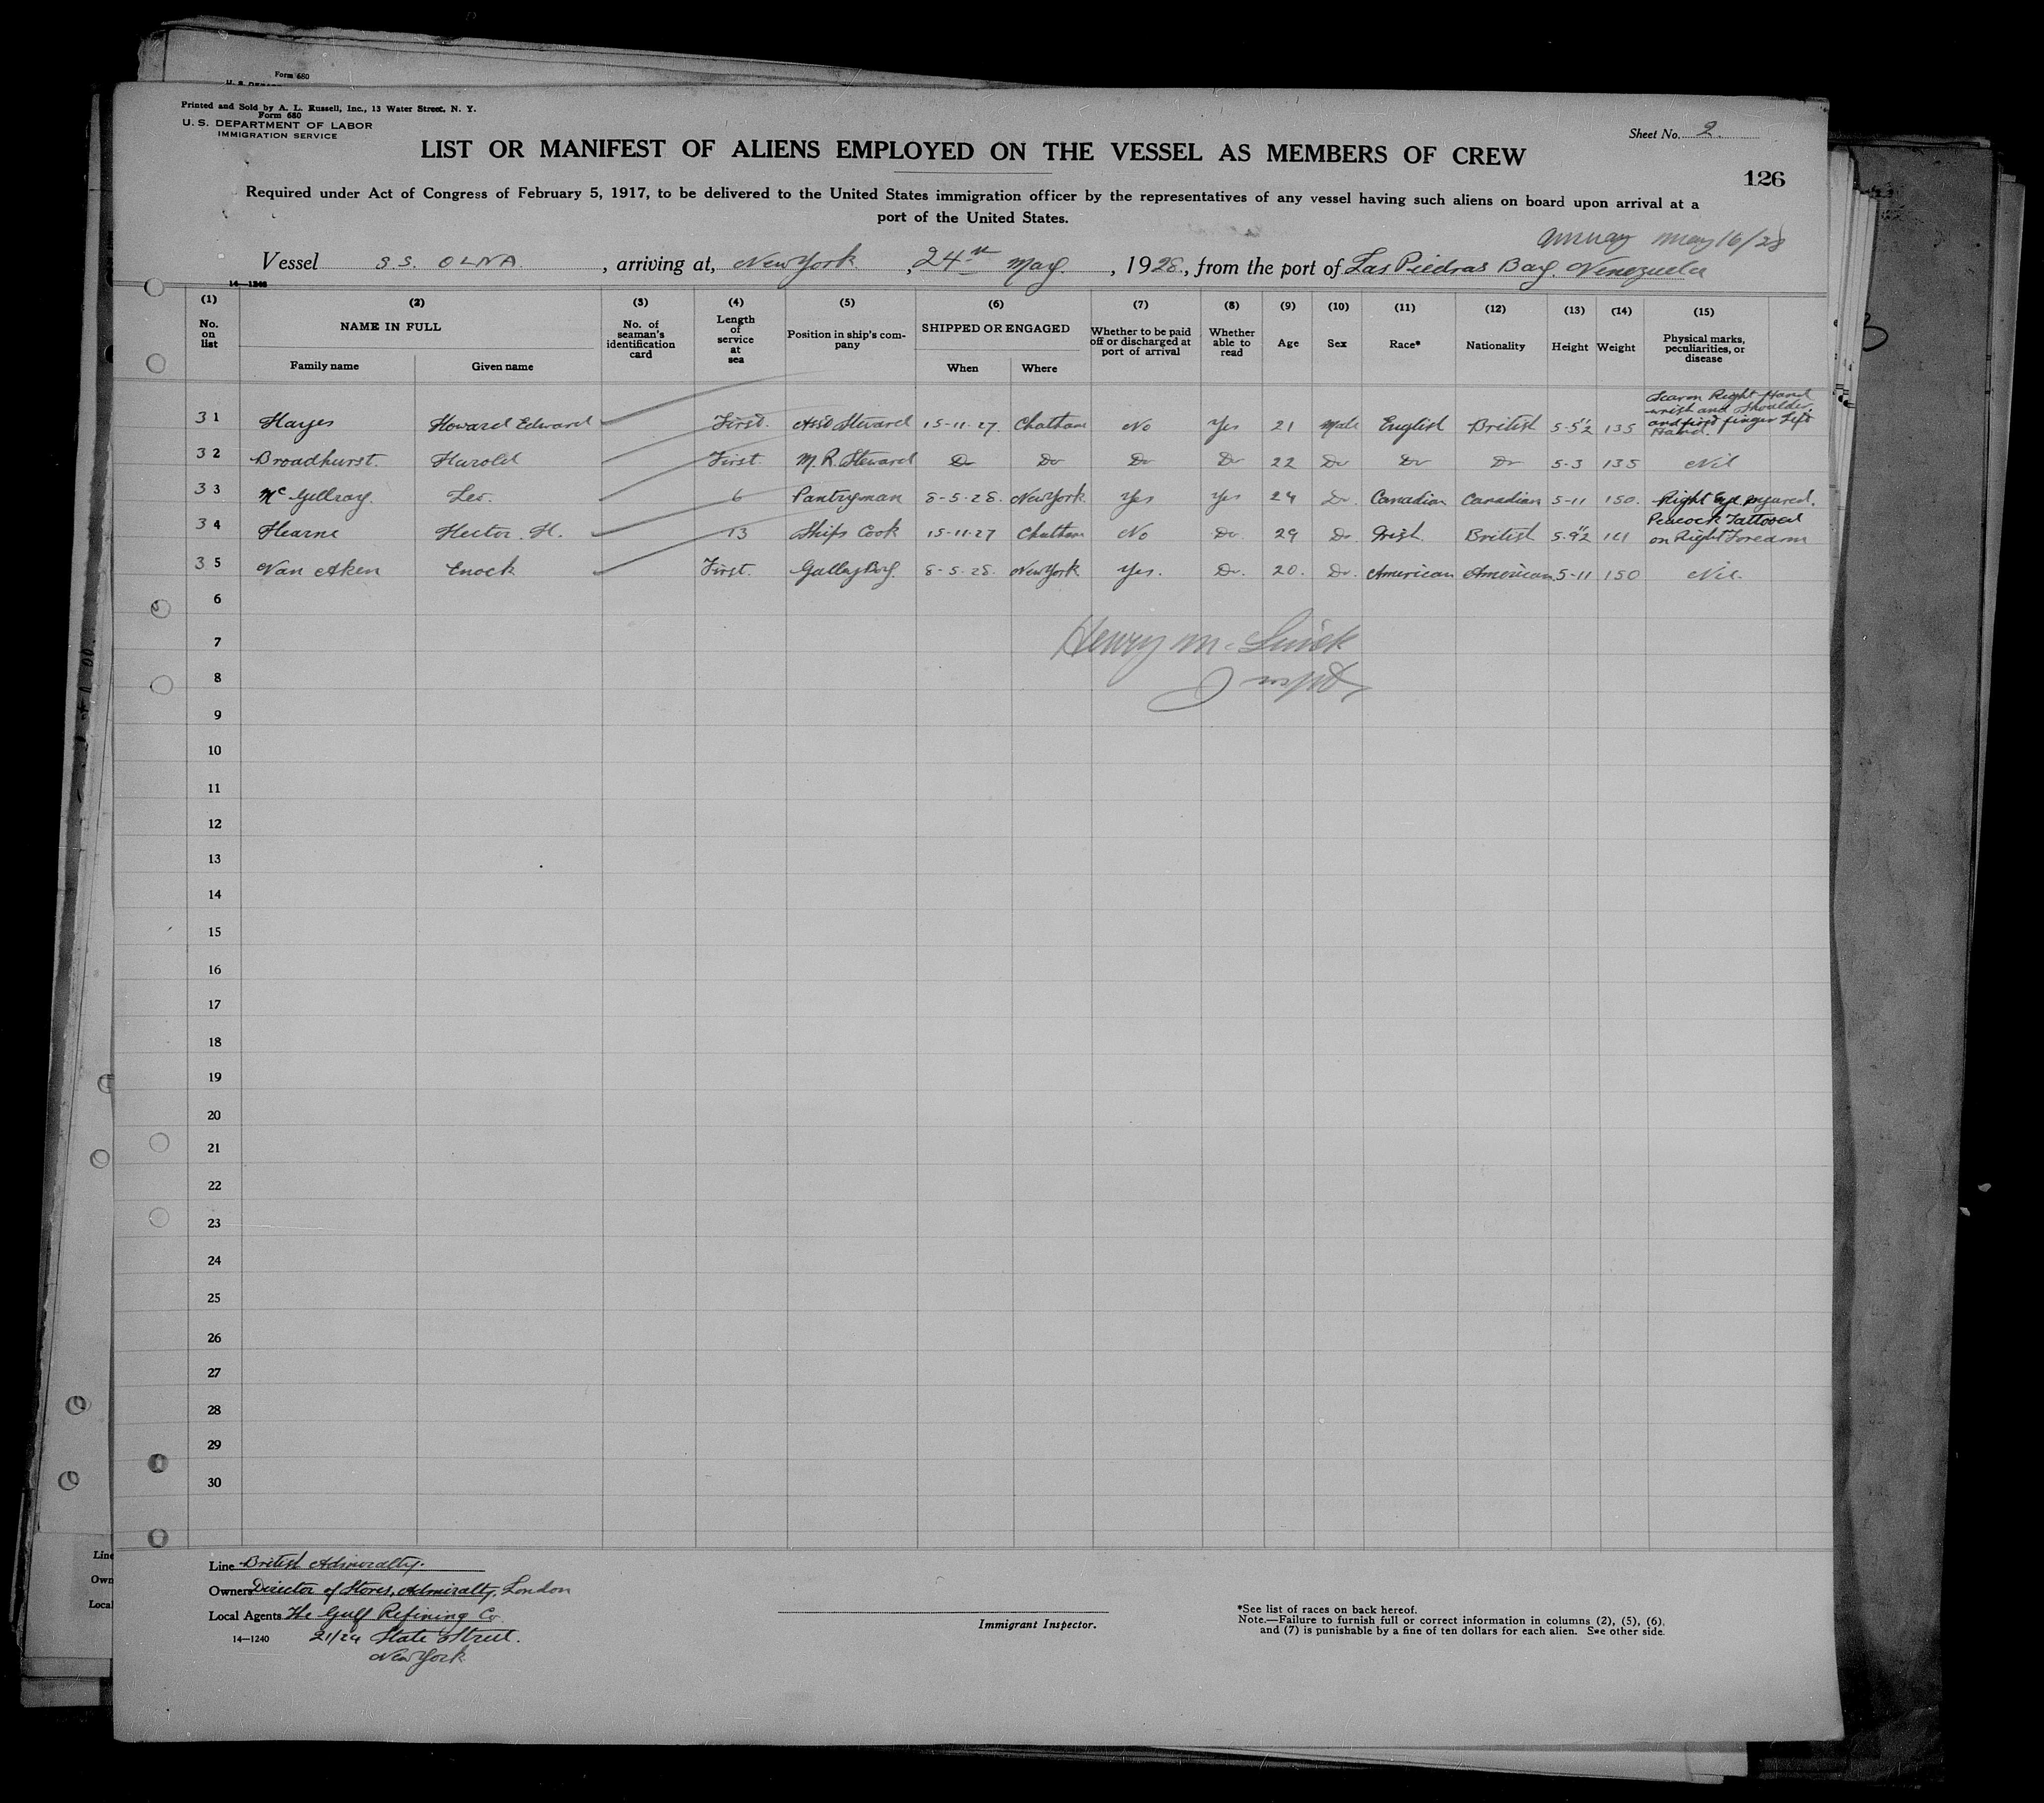 Form 680
Printed and Sold by A. L. Russell, Inc., 13 Water Street, N. Y.
Form 680
U. S. DEPARTMENT OF LABOR
IMMIGRATION SERVICE
Sheet No. 2
LIST OR MANIFEST OF ALIENS EMPLOYED ON THE VESSEL AS MEMBERS OF CREW
126
Required under Act of Congress of February 5, 1917, to be delivered to the United States immigration officer by the representatives of any vessel having such aliens on board upon arrival at a
port of the United States.
May 16/28
Vessel S.S. OLNA, arriving at, New York, 24th May, 1928, from the port of Las Piedras Bay. Venezuela
14—1240
(1) No. on list
(2) NAME IN FULL Family name Given name
(3) No. of seaman's identification card
(4) Length of service at sea
(5) Position in ship's company
(6) SHIPPED OR ENGAGED When Where
(7) Whether to be paid off or discharged at port of arrival
(8) Whether able to read
(9) Age
(10) Sex
(11) Race*
(12) Nationality
(13) Height
(14) Weight
(15) Physical marks, peculiarities, or disease
31 Hayes Howard Edward First. Asst Steward 15-11-27 Chatham No Yes 21 Male English British 5-5½ 135 Scar on Right Hand wrist and Shoulder. and first finger Left Hand.
32 Broadhurst. Harold First. M.R. Steward Do Do Do Do 22 Do Do Do 5-3 135 Nil
33 McGillray. Leo. 6 Pantryman 8-5-28. New York Yes Yes 24 Do. Canadian Canadian 5-11 150. Right Eye injured.
34 Hearne Hector. H. 13 Ships Cook 15-11-27 Chatham No Do. 29 Do Irish. British 5-9½ 141 Peacock Tattooed on Right Forearm
35 Van Aken Enock First. Galley Boy. 8-5-28. New York Yes. Do. 20. Do. American American 5-11 150 Nil.
6
7 Henry M.
8
9
10
11
12
13
14
15
16
17
18
19
20
21
22
23
24
25
26
27
28
29
30
Line British Admiralty.
Owners Director of Stores, Admiralty, London
Local Agents The Gulf Refining Co.
14—1240 21/24 State Street.
New York
Immigrant Inspector.
*See list of races on back hereof.
Note.—Failure to furnish full or correct information in columns (2), (5), (6).
and (7) is punishable by a fine of ten dollars for each alien. See other side.
Line
Own
Local